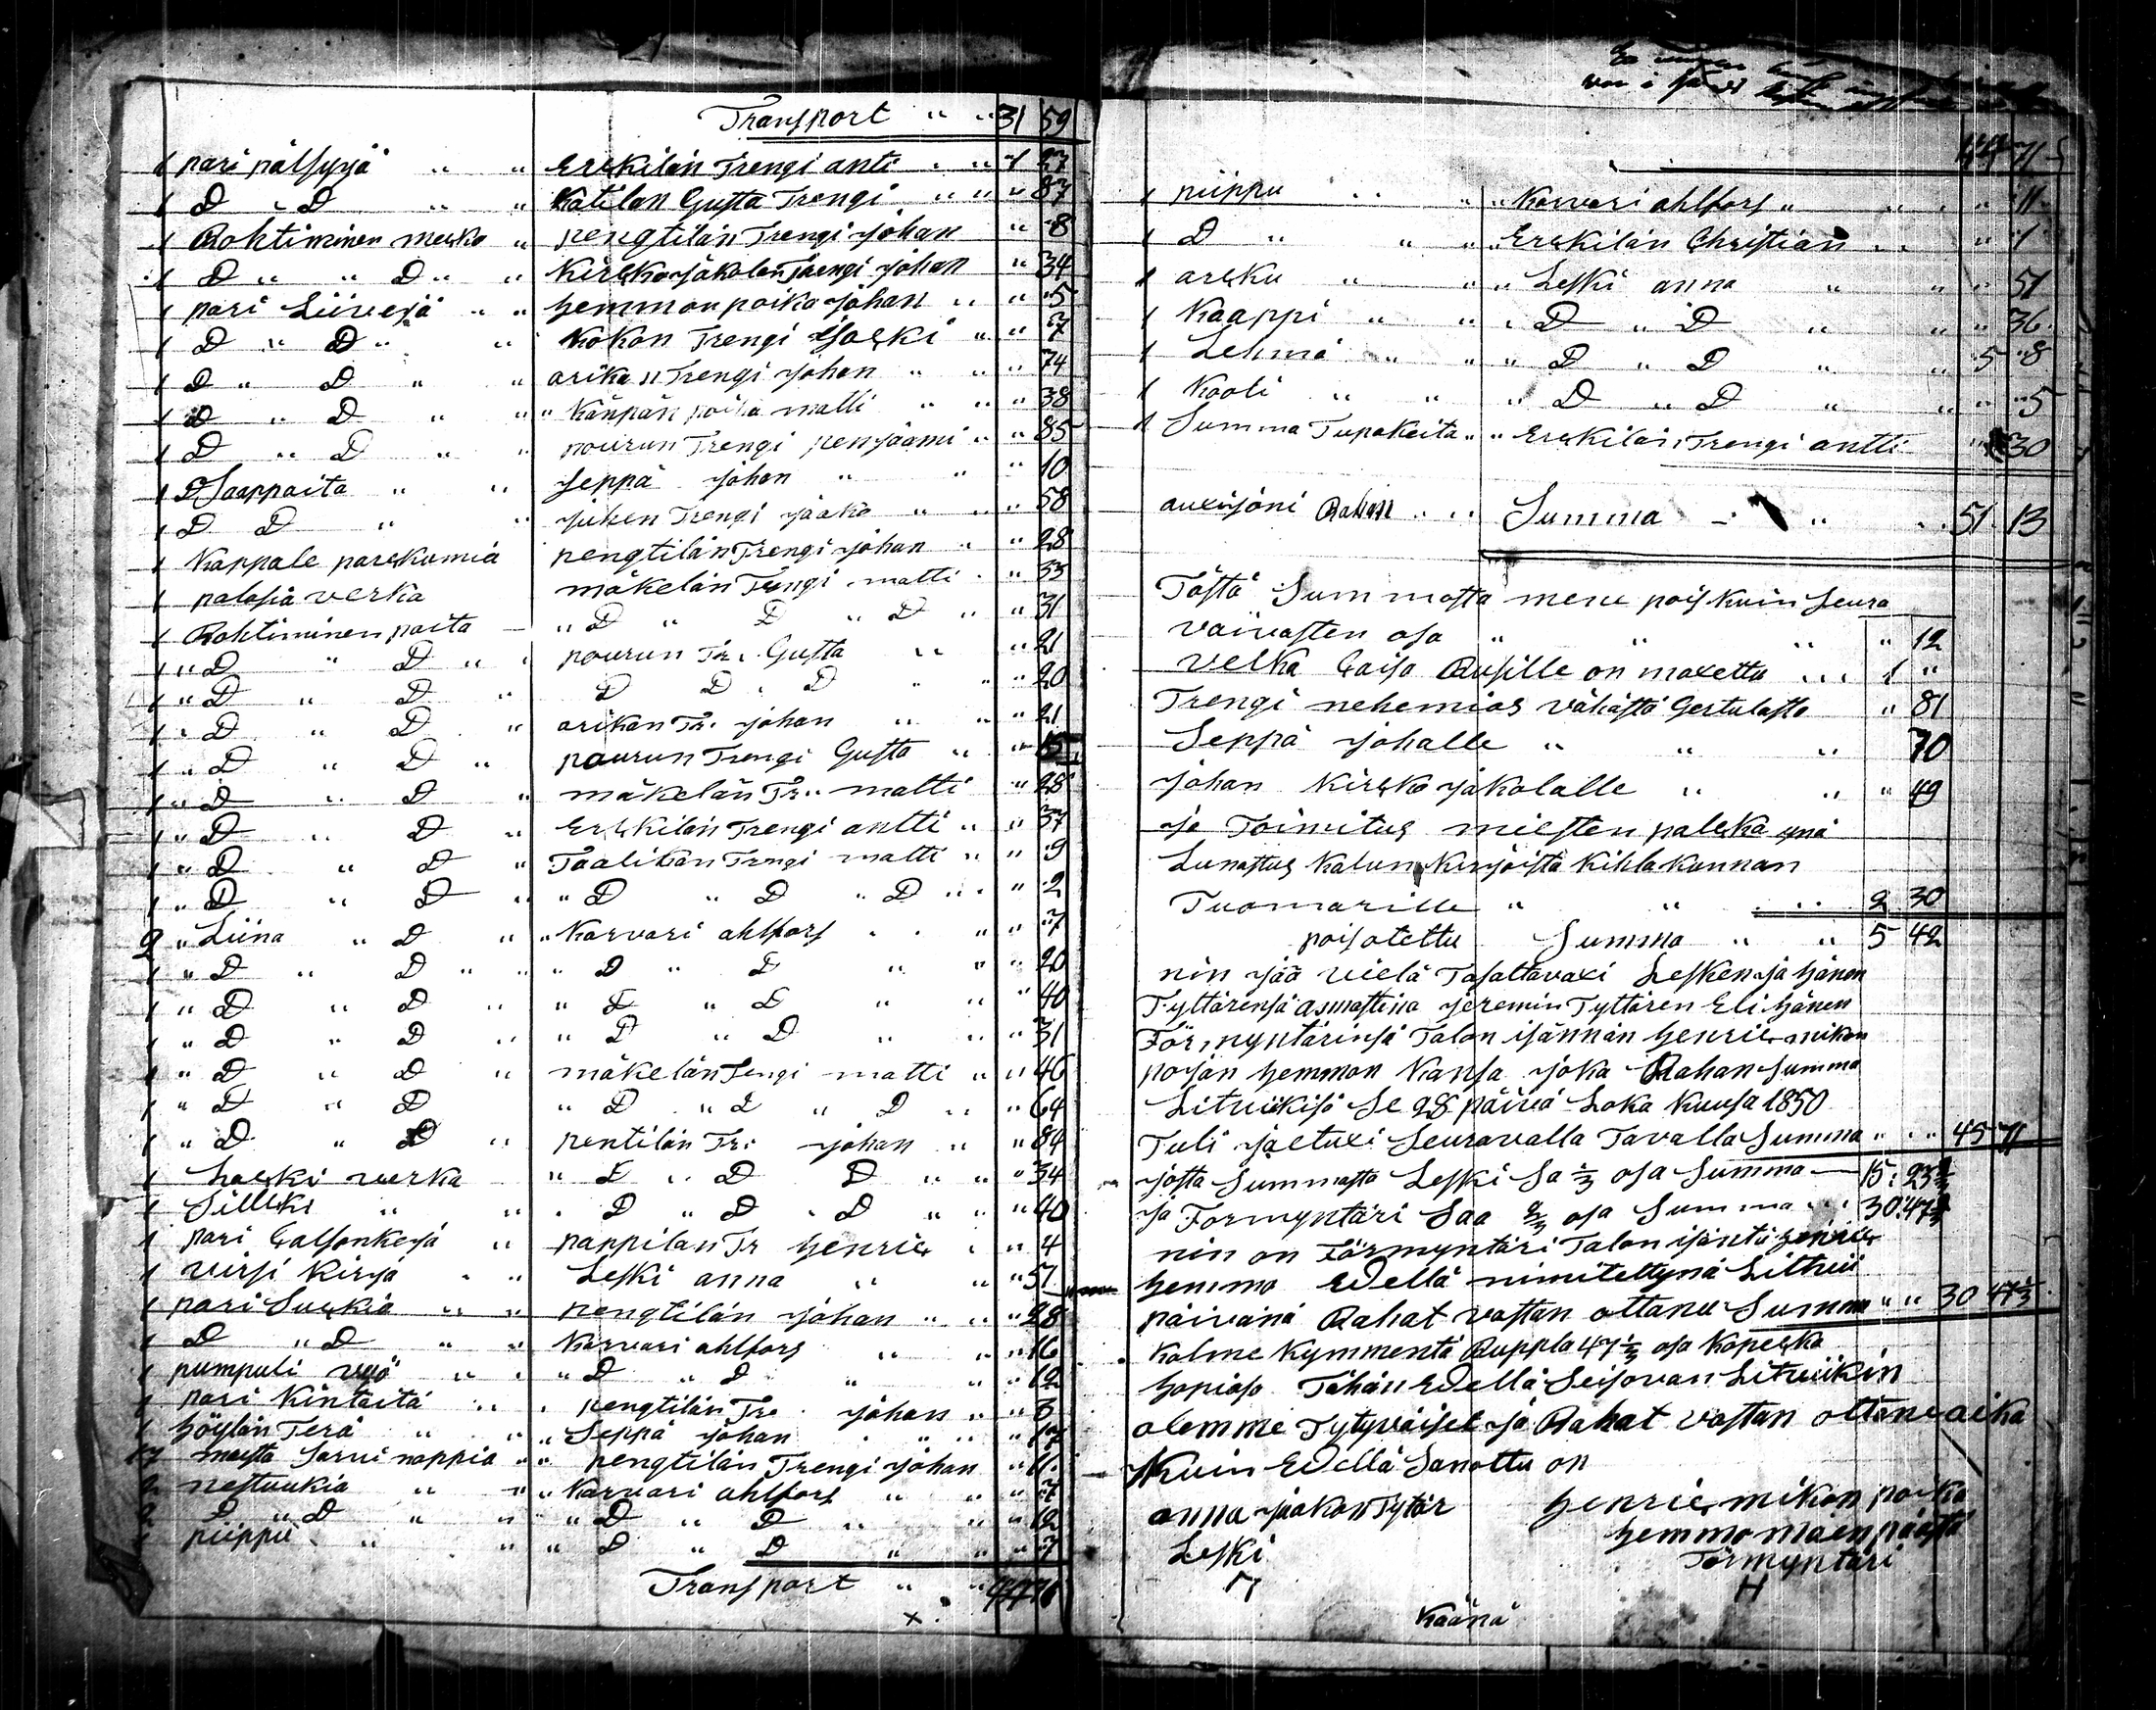 Transport " " 31 59
1 pari pälsyjä " " Erekilän Trengi anti " " 1 27
1 D " D " " Kätilän Gusta Trengi " " " 87
1 Rohtiminen mecko " pengtilän Trengi johan " 8
1 D " " D " " Kircko jakolan Trengi johan " 34
1 pari Liivejä " " hemmon poika johan " " 5
1 D " D " " Kokon Trengi Jacki " " 7
1 D " D " " arikan Trengi johan " " " 74
1 D " D " " Känpän poika matti " " " 38
1 D " D " " pourun Trengi penjaami " " 85
1 D Saappaita " " Seppä johan " " " 10
1 D D " " juhen Trengi jaako " " " 58
1 Kappale parckumia pengtilän Trengi johan " " 28
1 palasia verka mäkelän Trengi matti " " 33
1 Rohtiminen paita " D " D " D " " 31
1 " D " D " " pourun Tr. Gusta " " 21
1 " D " D " D D " D " " " 20
1 " D " D " arikan Tr. johan " " " 21
1 " D " D " pourun Trengi Gusta " " 15
1 " D " D " mäkelän Tr. matti " 28
1 " D " D " Erekilän Trengi antti " " 37
1 " D " D " Taalikan Trengi matti " " 9
1 " D " D " D " D " D " " 2
2 " Liina " D " " Karvari ahlfors " " " 7
1 " D " D " " " D " D " " " 20
1 " D " D " " D " D " " " 40
1 " D " D " " D " D " " " 31
1 " D " D " mäkelän Tengi matti " " 46
1 " D " D " D " D " D " " 64
1 " D " D " pentilän Tr. johan " " 84
1 hacki verka " D " D D " " " 34
1 Silleki " " " D " D " D " " " 40
1 pari Calsonkeja " pappilan Tr henric " " 4
1 virsi Kirja " " Leski anna " " " 51
1 pari Suckia " " pengtilän johan " " " 28
1 D " D " " Karvari ahlfors " " " 16
1 pumpuli vyö " " " D " D " " " 12
1 pari Kintaita " " pengtilän Tre. johan " " 8
1 höylän Terä " " " Seppä johan " " " 17
17 musta Sarvi nappia " " pengtilän Trengi johan " 11
2 nestuukia " " " Karvari ahlfors " " " 7
2 D " D " " " D " D " " " 12
1 piippu " " " " D " D " " " 7
Transport " " 44 71
44 71
1 piippu " " " Karvari ahlfors " " " 11
1 D " " " Erekilän Christian " " " 1
1 arcku " " " Leski anna " " " 51
1 Kaappi " " " D " D " " 36
1 Lehmä " " " D " D " " 5 8
1 Kooli " " " D " D " " " 5
1 Summa Tupakeita " " Erekilän Trengi antti " 30
auxisjoni Rahan " " Summa " " 51 13
Tästä Summasta mene pois Kuin Seura
vaivasten osa " " " " 12
velka Caisa Rusille on maxettu " " 1 "
Trengi nehemias vähästä Gertulasta " 81
Seppä johalle " " " 70
johan Kircko jakolalle " " " 49
ja Toimitus miesten palcka ynä
Lunastus Kalun Kirjoista Kihlakunnan
Tuomarille " " " 2 30
pois otettu Summa " " 5 42
nin jää vielä Tasattavaxi Lesken ja hänen
Tyttärensä asmastiina jeremin Tyttären Eli hänen
Förmyntärinsä Talon isännän henric mikon
pojan hemmon Kansa joka Rahan Summa
Litvikisä Se 28 päivä Loka Kuusa 1850
Tuli jaetuxi Seuravalla Tavalla Summa " " 45 71
josta Summasta Leski Sa 1/3 osa Summa 15: 23 2/3
ja Formyntäri Saa 2/3 osa Summa " " 30: 47 1/3
nin on Förmyntäri Talon isäntä henric
hemmo Edellä nimitettynä Litvii
päivänä Rahat vastan ottanu Summa " " 30 47 1/3
Kolme Kymmentä Ruppla 47 1/3 osa Kopecka
hopiasa Tähän Edellä Seisovan Litviikin
olemme Tytyväiset ja Rahat vastan ottane aika
Kuin Edellä Sanottu on
anna jaakon Tytär henric mikon poika
Leski hemmo mäenpäästä
Förmyntäri
H
Käänä